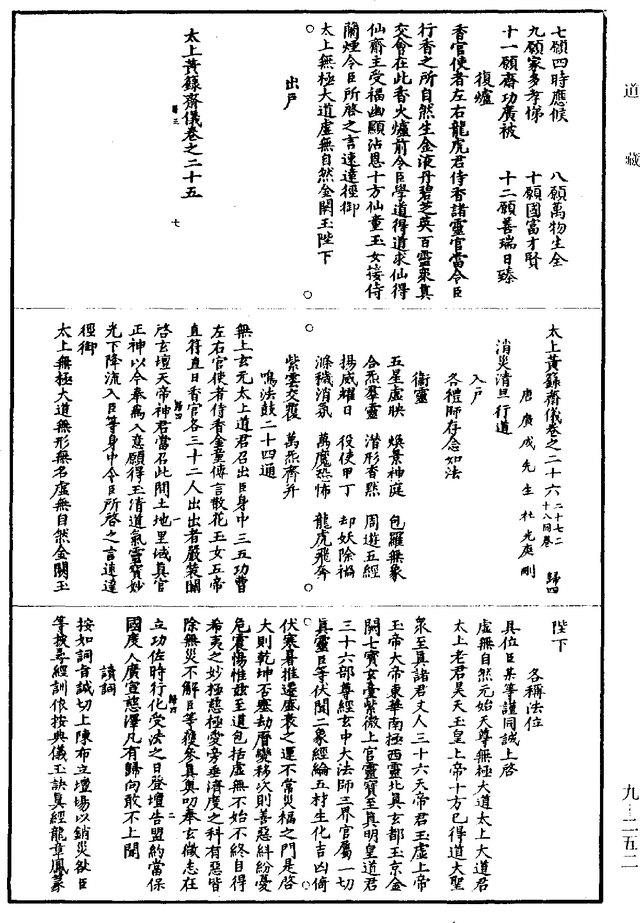 道藏
七願四時應候　八願萬物生全
九願家多孝悌　十願國富才賢
十一願齋功廣被　十二願善瑞日臻
復爐
香官使者左右龍虎君侍香諸靈官當令臣
行香之所自然生金液丹碧芝英百靈衆真
交會在此香火爐前令臣學道得道求仙得
仙齋主受福幽顯沾恩十方仙童玉女接侍
蘭煙令臣所啓之言速達徑御
太上無極大道虛無自然金闕玉陛下
出戶
太上黃籙齋儀卷之二十五
歸三
七
太上黃籙齋儀卷之二十六
二十七二十八同卷
歸四
唐廣成先生杜光庭刪
消災清旦行道
入戶
各禮師存念如法
衛靈
五星虛映　煥景神庭　包羅無象
合炁羣靈　潛形杳默　周遊五經
揚威耀日　役使甲丁　却妖除禍
滌穢消氛　萬魔恐怖　龍虎飛奔
紫雲交覆　萬炁齊并
鳴法鼓二十四通
無上玄元太上道君召出臣身中三五功曹
左右官使者侍香金童傳言散花玉女五帝
直符直日香官各三十二人出出者嚴裝關
啓玄壇天帝神君當召此間土地里域真官
正神以今奉爲入意願得玉清道氣靈寶妙
光下降流入臣等身中令臣所啓之言速達
徑御
太上無極大道無形無名虛無自然金闕玉
歸四
一
陛下
各稱法位
具位臣某等謹同誠上啓
虛無自然元始天尊無極大道太上大道君
太上老君昊天玉皇上帝十方已得道大聖
衆至真諸君丈人三十六天帝君玉虛上帝
玉帝大帝東華南極西靈北真玄都玉京金
闕七寶玄臺紫微上宮靈寶至真明皇道君
三十六部尊經玄中大法師三界官屬一切
真靈臣等伏聞二象經綸五材生化吉凶倚
伏寒暑推遷盛衰之運不常災福之門是啓
大則乾坤否塞劫曆變移次則善惡糾紛憂
危震惕惟茲至道包括虛無不始不終自得
希夷之妙極慈極愛旁垂濟度之科有惡皆
除無災不解臣等獲參真奧叨奉玄徽志在
立功佐時行化受法之日登壇告盟約當保
國度人廣宣慈澤凡有歸向敢不上聞
讀詞
按如詞旨誠切上陳布立壇場以銷災咎臣
等披尋經訓依按典儀玉訣真經龍章鳳篆
歸四
二
九—二五二